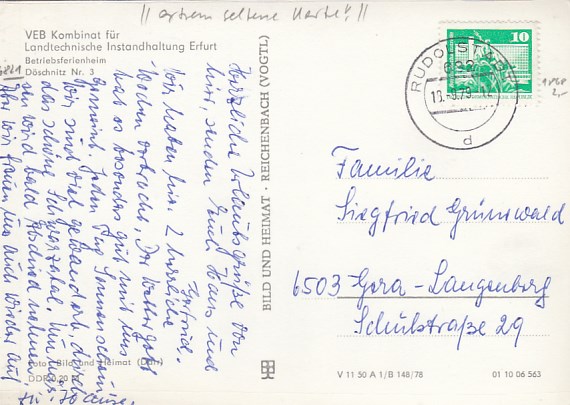 || extrem seltene Karte! ||
VEB Kombinat für
Landtechnische Instandhaltung Erfurt
Betriebsferienheim
Döschnitz Nr. 3
Herzliche Urlaubsgrüße von
hier, senden Euch Hans und
Gertrude.
Wir haben hier 2 herrliche
Wochen verbracht. Der Wettergott
hat es besonders gut mit uns
gemeint. Jeden Tag Sonnenschein.
Wir sind viel gewandert durch
das schöne Schwarzatal. Nun heißt
es wird bald Abschied nehmen,
wir freuen uns auch wieder auf
zu Hause.
Foto: Bild und Heimat
DDR 0,20 M
BILD UND HEIMAT · REICHENBACH (VOGTL)
10
RUDOLSTADT
682
10.-9.79
d
Familie
Siegfried Grünwald
6503 Gera-Langenberg
Schulstraße 29
V 11 50 A 1/B 148/78
01 10 06 563